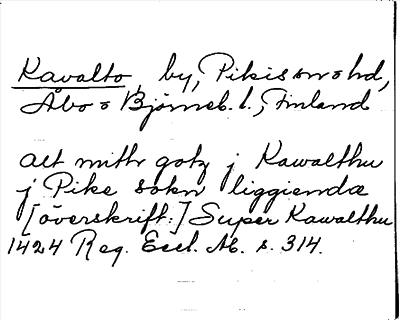 Kavalto, by, Pikis sn o hd,
Åbo o Björneb. l., Finland
alt mitht gotz j Kawalthu
j Pike sokn liggiendæ
[överskrift:] Super Kawalthu
1424 Reg. Eccl. Ab. s. 314.